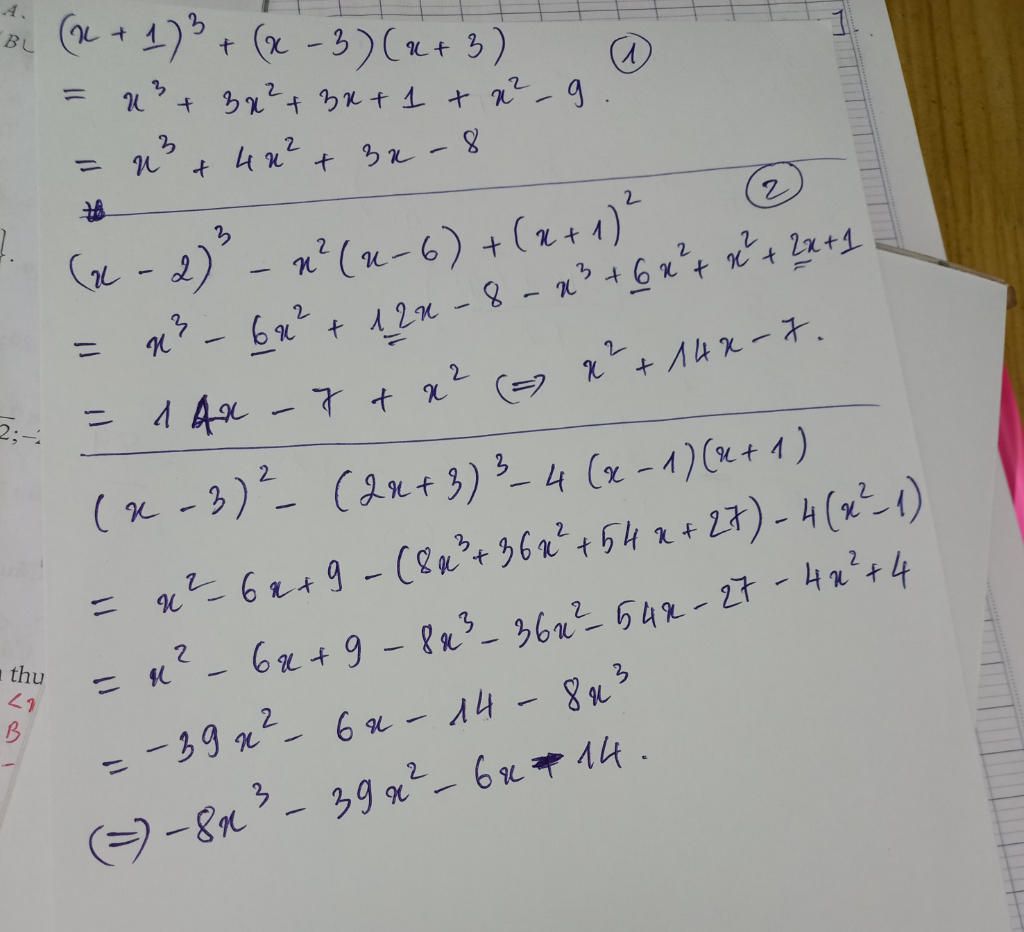 A.
B
(x + 1)³ + (x - 3)(x + 3) ①
= x³ + 3x² + 3x + 1 + x² - 9.
= x³ + 4x² + 3x - 8
②
(x - 2)³ - x²(x - 6) + (x + 1)²
= x³ - 6x² + 12x - 8 - x³ + 6x² + x² + 2x + 1
= 14x - 7 + x² (=) x² + 14x - 7.
(x - 3)² - (2x + 3)³ - 4(x - 1)(x + 1)
= x² - 6x + 9 - (8x³ + 36x² + 54x + 27) - 4(x² - 1)
= x² - 6x + 9 - 8x³ - 36x² - 54x - 27 - 4x² + 4
= -39x² - 6x - 14 - 8x³
(=) -8x³ - 39x² - 6x - 14.
thu
B